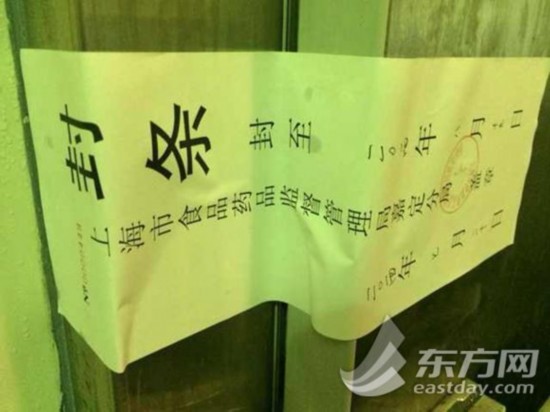 封条
封至 二〇一四年八月 日
上海市食品药品监督管理局嘉定分局
二〇一四年七月二十日
东方网
eastday.com